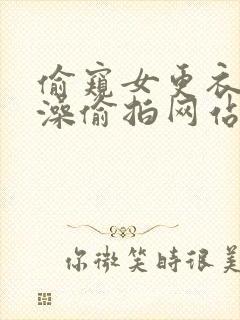 偷窥女更衣
澡偷拍网站
你微笑時很美